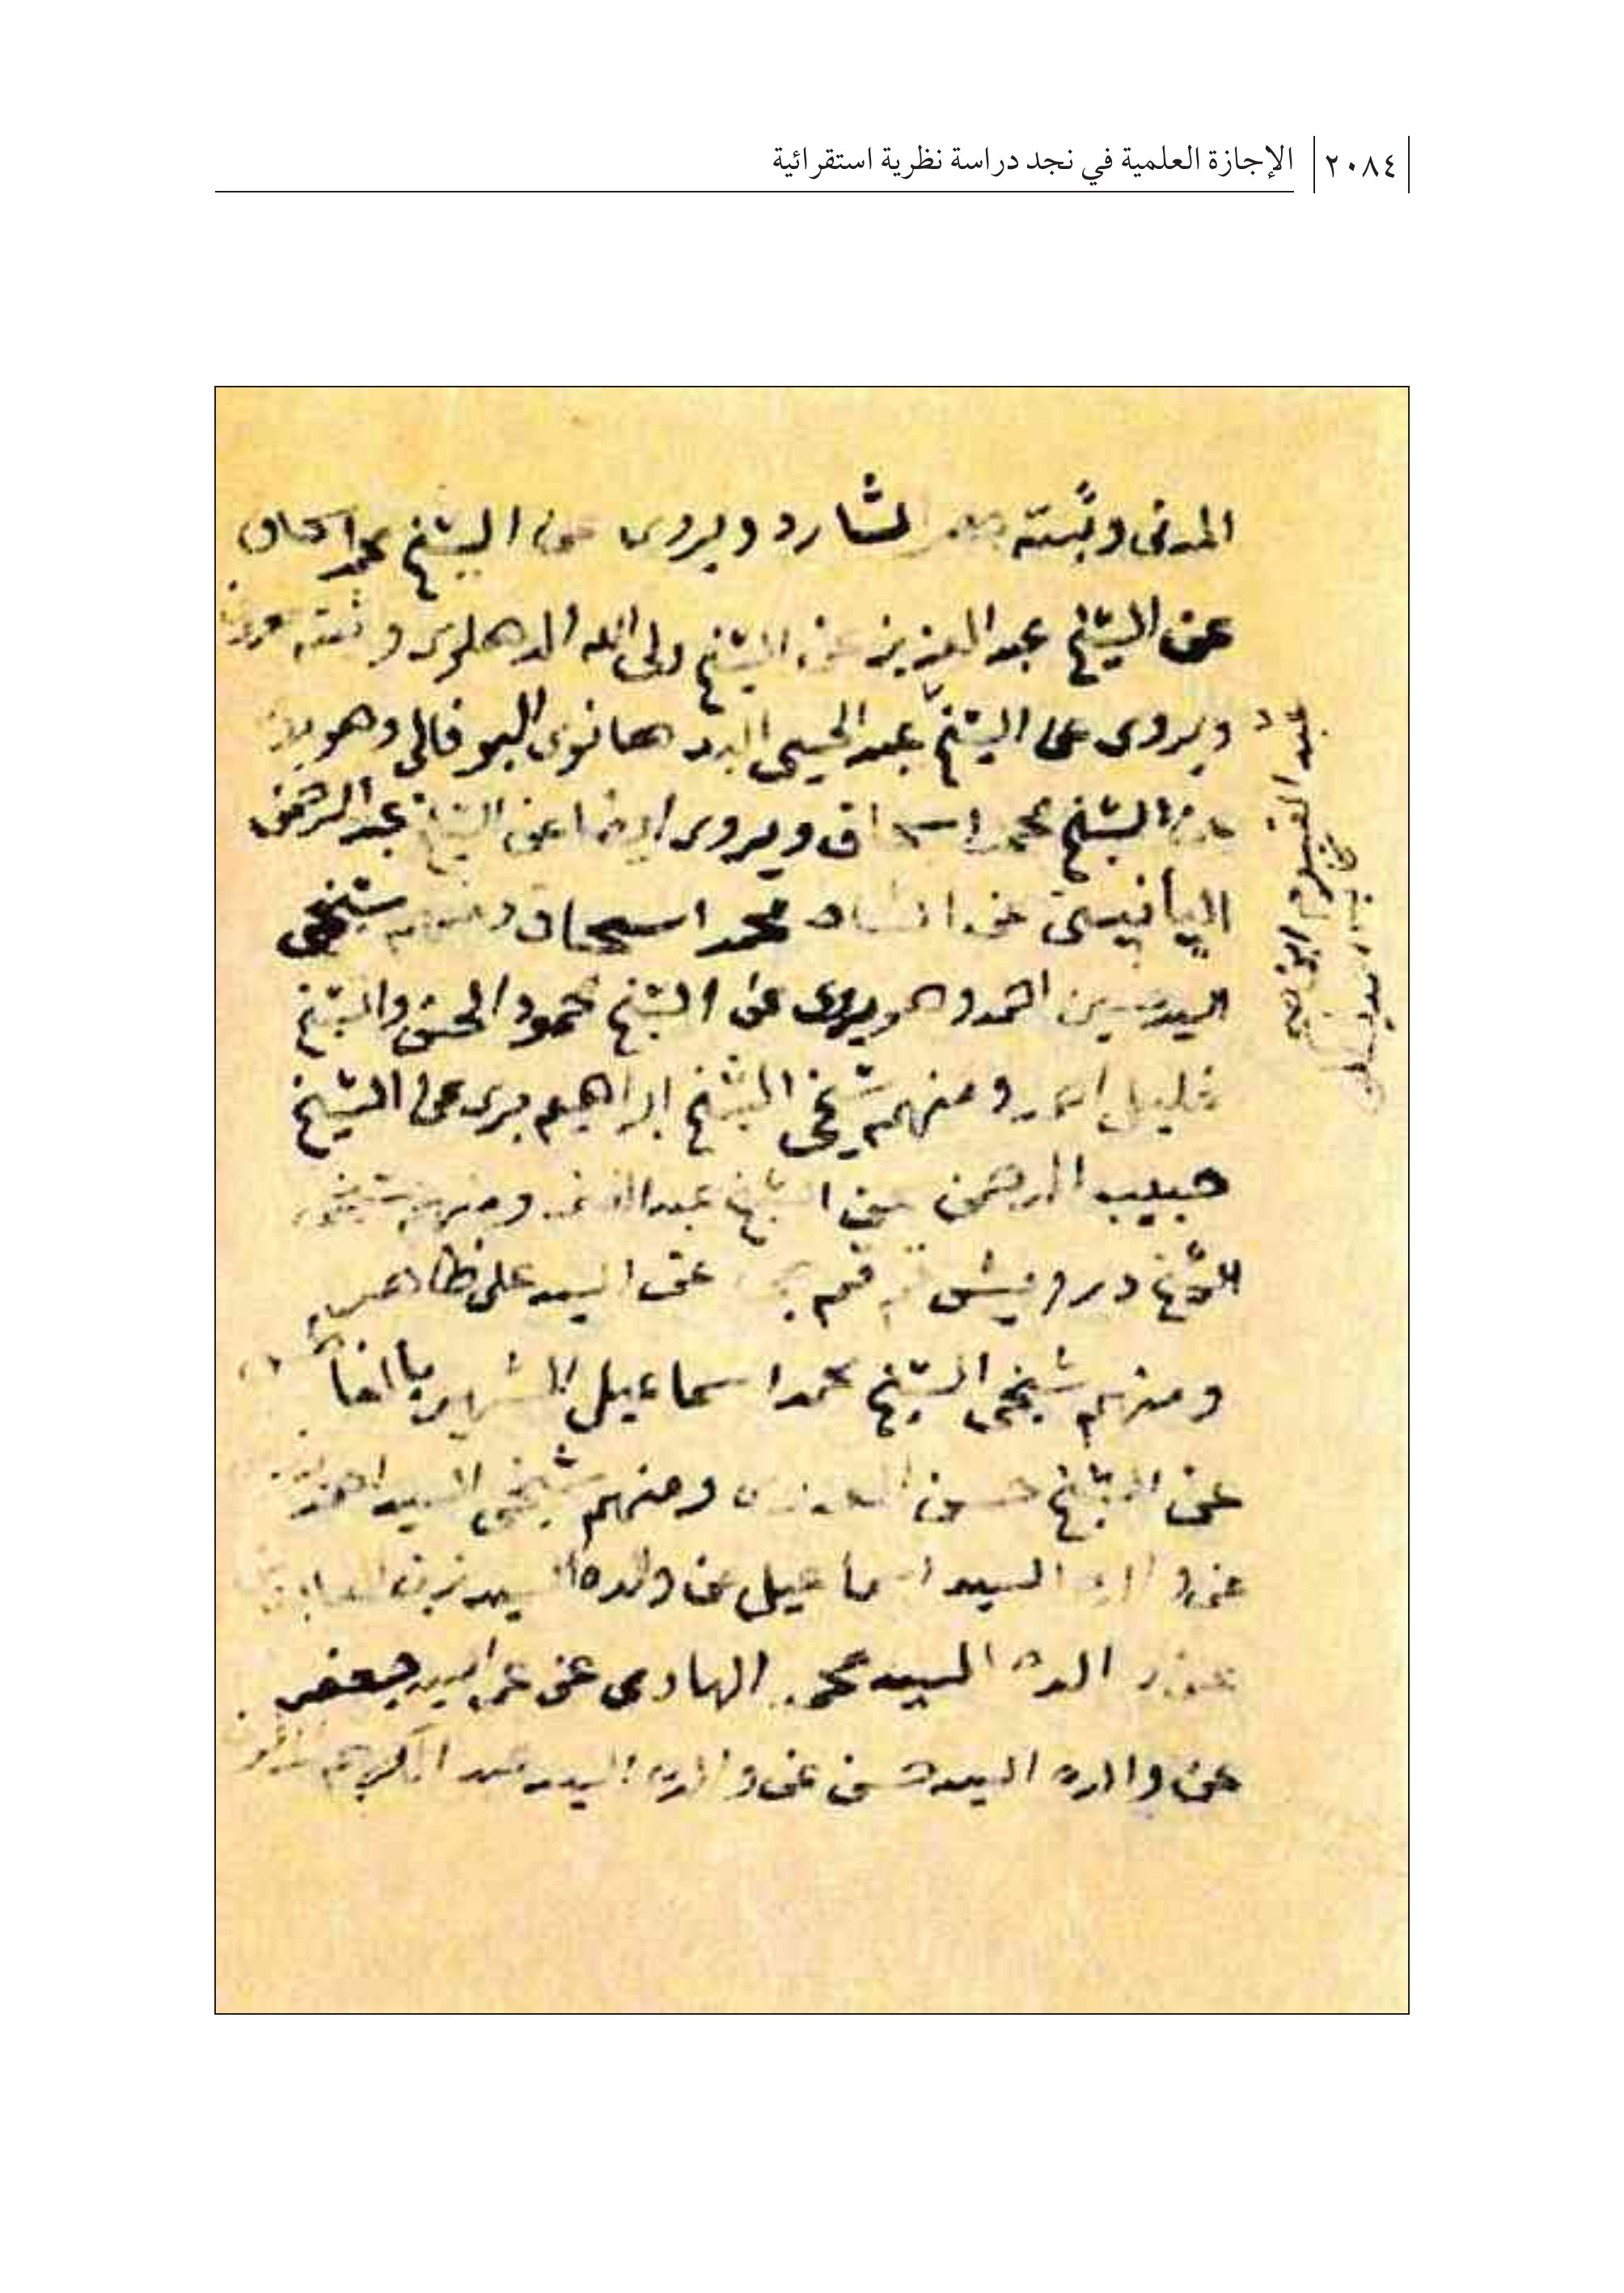 ٢٠٨٤ الإجازة العلمية في نجد دراسة نظرية استقرائية
المدنى وثبته الشارد ويروى عن الشيخ محمد اسحاق
عن الشيخ عبد العزيز عن الشيخ ولى الله الدهلوى وثبته معروف
ويروى عن الشيخ عبد الحى البدهانوى البوفالى وهو
عن الشيخ محمد اسحاق ويروى ايضا عن الشيخ عبد الرحمن
البانيبتى عن الشاه محمد اسحاق ومنهم شيخى
السيد حسين احمد وهو يروى عن الشيخ محمود الحسن والشيخ
خليل احمد ومنهم شيخى الشيخ ابراهيم برى عن الشيخ
حبيب الرحمن عن الشيخ عبد الغنى ومنهم شيخى
الشيخ درويش قمقمجى عن السيد على ظاهر
ومنهم شيخى الشيخ محمد اسماعيل الشهير
عن الشيخ حسن ومنهم شيخى السيد احمد
عن والده السيد اسماعيل عن والده السيد زين العابدين
عن والده السيد محمد الهادى عن عمه السيد جعفر
عن والده السيد حسن عن والده السيد عبد الكريم
عبد القيوم ابن